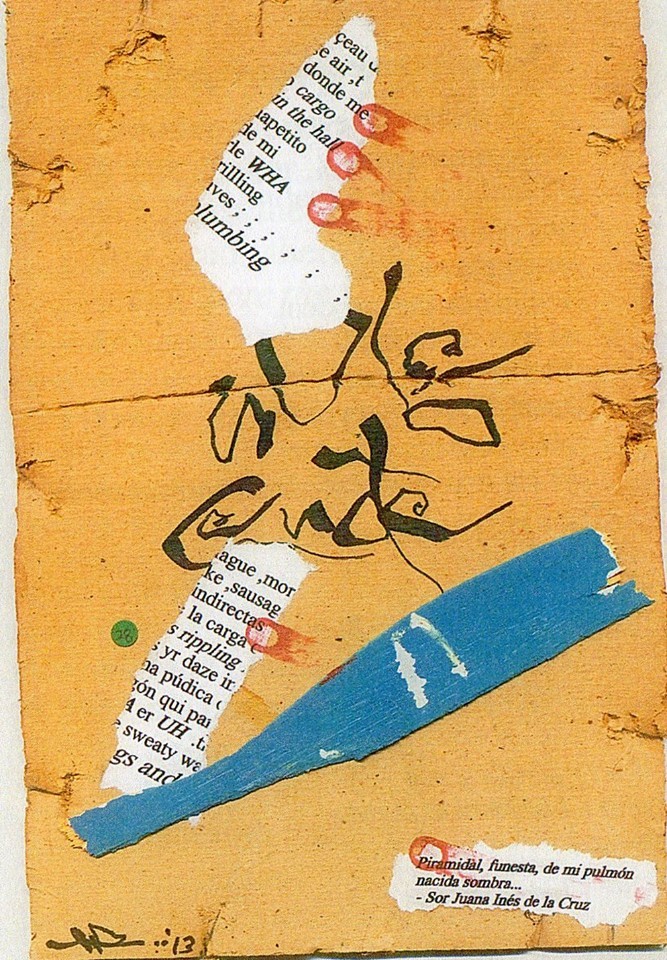 çeau
e air ,t
donde me
cargo
in the hall
napetito
de mi
de WHA
rilling
ves , ; ; ; ; ;
lumbing
ague ,mor
ke ,sausag
indirectas
la carga
s rippling
s yr daze in
na púdica
ón qui par
er UH .t
sweaty wa
gs and
28
Piramidal, funesta, de mi pulmón
nacida sombra...
- Sor Juana Inés de la Cruz
'13